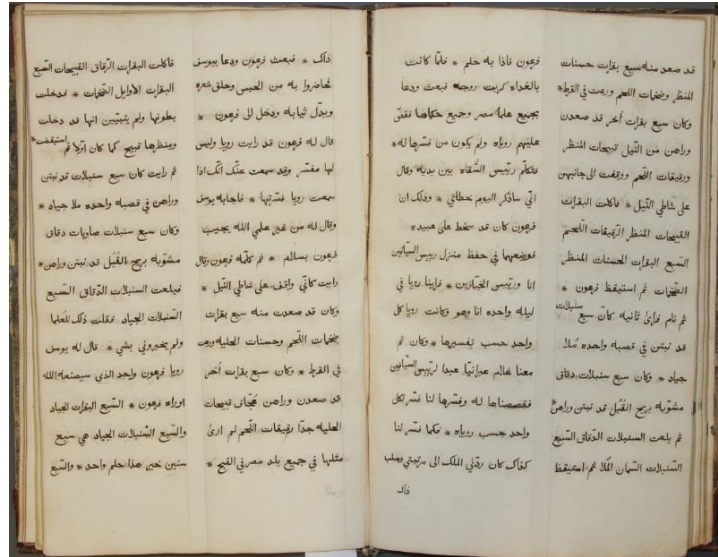 قد صعد منه سبع بقرات حسنات
المنظر وضخمات اللحم ورعت في القرط *
وكان سبع بقرات اخر قد صعدن
وراهن من النيل قبيحات المنظر
ورقيقات اللحم ووقفت الى جانبهن
على شاطي النيل * فاكلت البقرات
القبيحات المنظر الرقيقات اللحم
السبع البقرات الحسنات المنظر
الضخمات ثم استيقظ فرعون *
ثم نام فراى ثانيه كان سبع سنبلات
قد نبتن في قصبه واحده ملا
جياد * وكان سبع سنبلات دقاق
مشوبه بريح القبل قد نبتن وراهن *
ثم بلعت السنبلات الدقاق السبع
السنبلات السمان الملا ثم استيقظ
فرعون فاذا به حلم * فلما كانت
بالغداه كربت روحه فبعث ودعا
بجميع علما مصر وجميع حكماها فقص
عليهم روياه ولم يكون من فسرها له *
فتكلم رئيس السقاه بين يديه وقال
اني ساذكر اليوم خطائي * وذلك ان
فرعون كان قد سخط على عبيده
فوضعهما في حفظ منزل رييس السيافين
انا ورئيس الخبازين * فراينا رويا في
ليله واحده انا وهو وكانت رويا كل
واحد حسب تفسيرها * وكان ثم
معنا غلام عبرانيا عبدا لرئيس السيافين
فقصصناها له وفسرها لنا فسر لكل
واحد حسب روياه * فكما فسر لنا
كذاك كان ردني الملك الى مرتبتي وصلب
ذاك
ذاك * فبعث فرعون ودعا بيوسف
فحاضروا به من الحبس وحلق شعره
وبدل ثيابه ودخل الى فرعون *
قال له فرعون قد رايت رويا وليس
لها مفسر وقد سمعت عنك انك اذا
سمعت رويا فسرتها * فاجابه يوسف
وقال له من غير علمي الله يجيب
فرعون بسلام * ثم كلمه فرعون وقال
رايت كاني واقف على شاطي النيل *
وكان قد صعدت منه سبع بقرات
ضخمات اللحم وحسنات الحليه ورعت
في القرط * وكان سبع بقرات اخر
قد صعدن وراهن عجاف قبيحات
الحليه جدا رقيقات اللحم لم ارى
مثلها في جميع بلد مصر في القبح *
فاكلت البقرات الدقاق القبيحات السبع
البقرات الاوايل الضخمات * فدخلت
بطونها ولم يتبيّن انها قد دخلت
ومنظرها قبيح كما كان اولا ثم استيقظت *
ثم رايت كان سبع سنبلات قد نبتن
وراهن في قصبه واحده ملا جياد *
وكان سبع سنبلات ضاويات دقاق
مشوبه بريح القبل قد نبتن وراهن *
فبلعت السنبلات الدقاق السبع
السنبلات الجياد فقلت ذلك للعلما
ولم يخبروني بشي * قال له يوسف
رويا فرعون واحد الذي سيصنعه الله
اوراه فرعون * السبع البقرات الجياد
والسبع السنبلات الجياد هي سبع
سنين خير هذا حلم واحد * والسبع